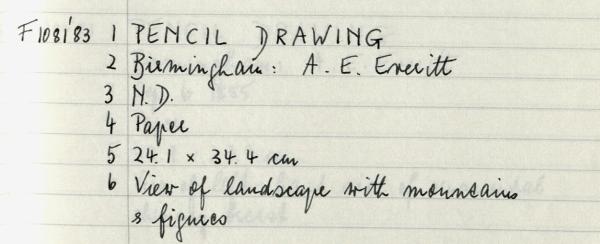 F1081'83 1 PENCIL DRAWING
2 Birmingham: A. E. Everitt
3 N.D.
4 Paper
5 24.1 × 34.4 cm
6 View of landscape with mountains
& figures